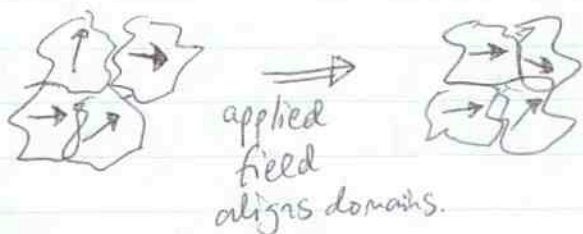 applied
field
aligns domains.